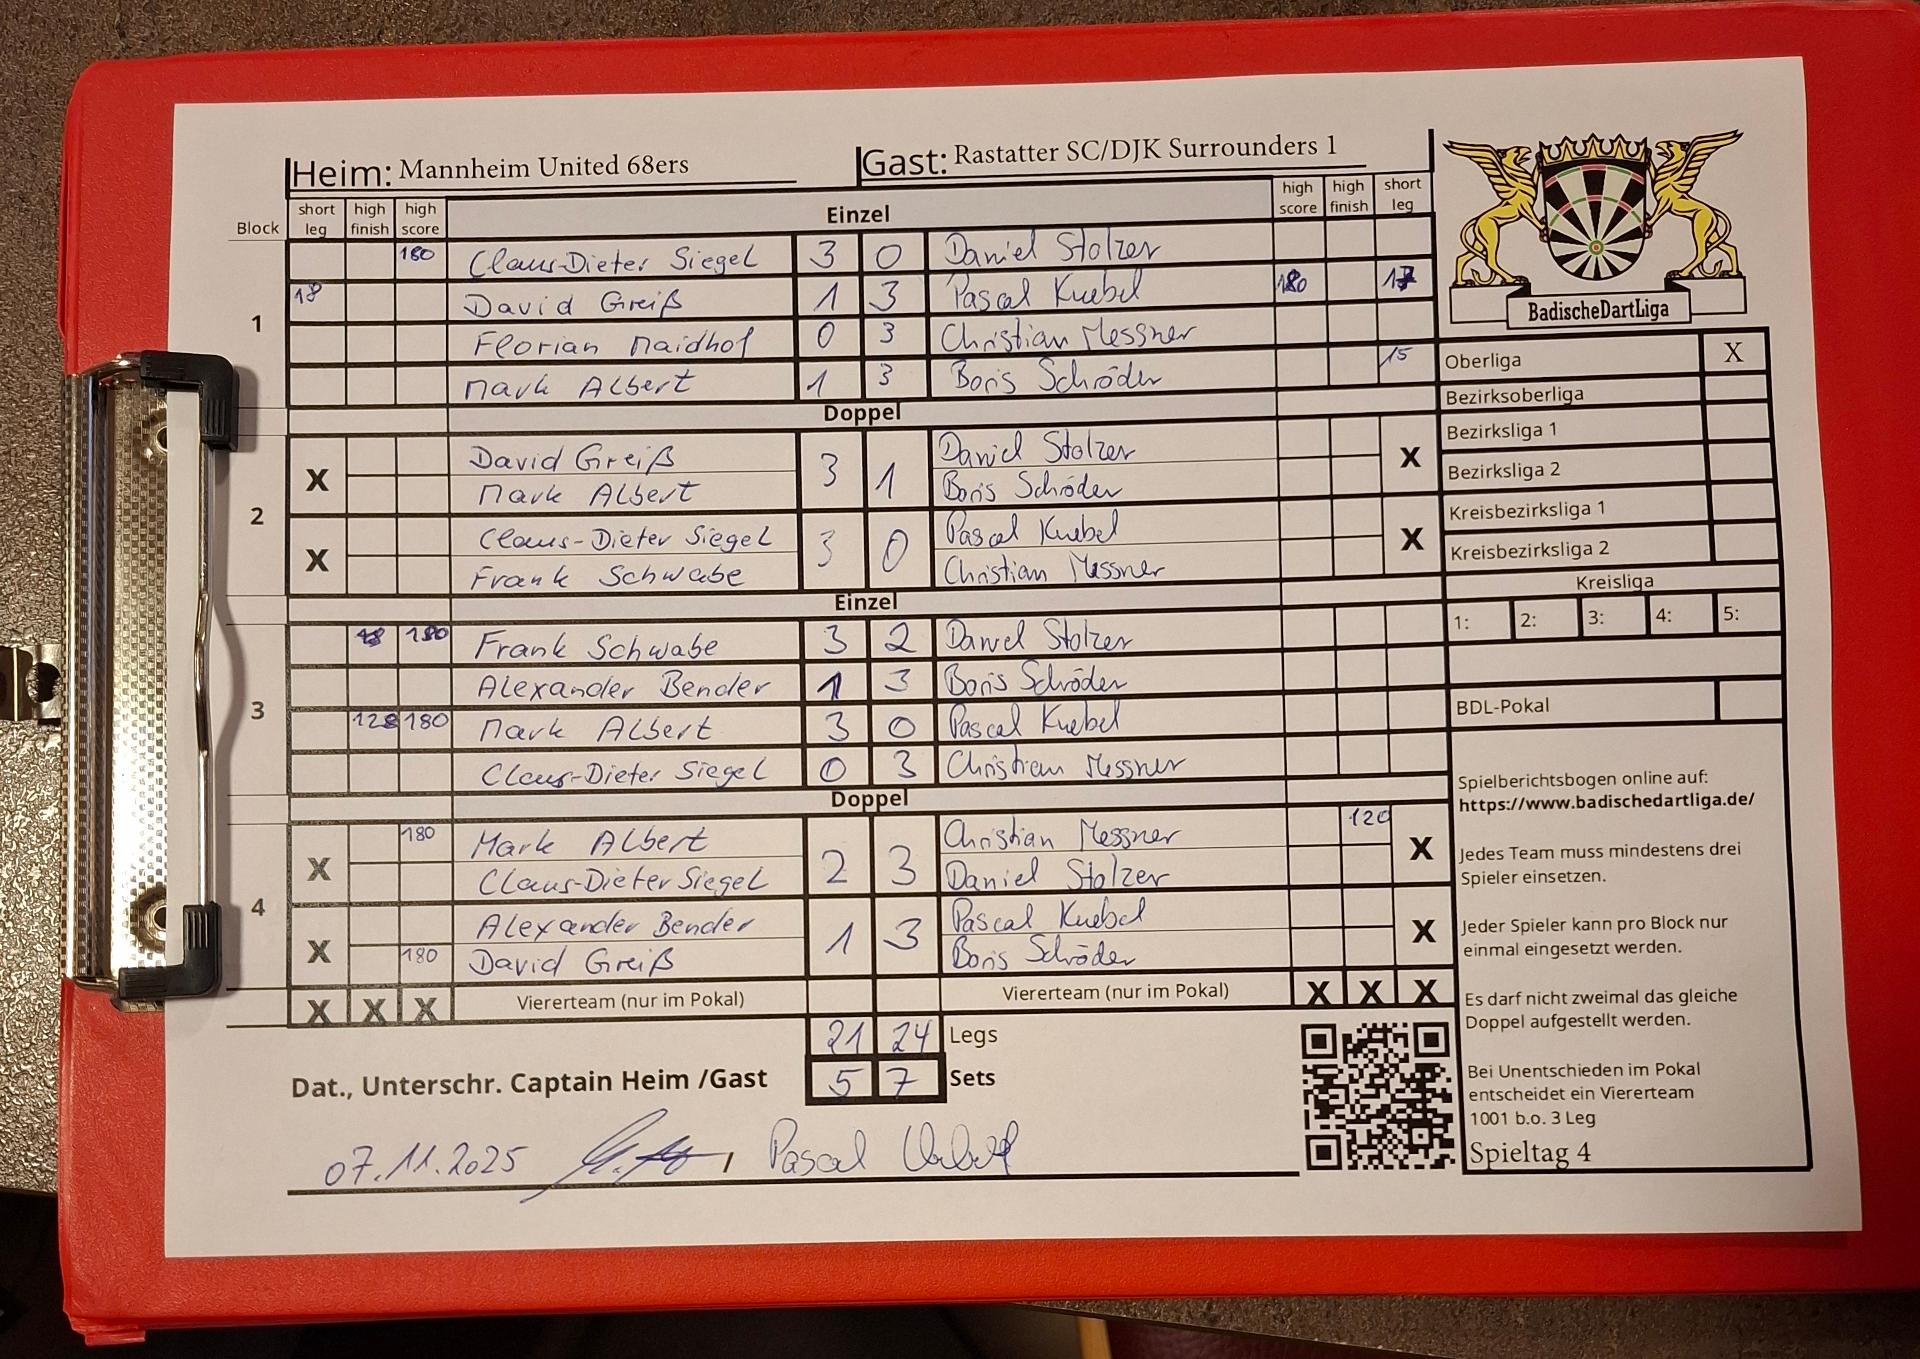 Heim: Mannheim United 68ers Gast: Rastatter SC/DJK Surrounders 1
Block short leg high finish high score Einzel high score high finish short leg
180 Claus-Dieter Siegel 3 0 Daniel Stolzer
18 David Greiß 1 3 Pascal Knebel 180 17
1
Florian Maidhof 0 3 Christian Messner
Mark Albert 1 3 Boris Schröder 15
Doppel
X David Greiß 3 1 Daniel Stolzer X
Mark Albert Boris Schröder
2
X Claus-Dieter Siegel 3 0 Pascal Knebel X
Frank Schwabe Christian Messner
Einzel
180 Frank Schwabe 3 2 Daniel Stolzer
Alexander Bender 1 3 Boris Schröder
3
128 180 Mark Albert 3 0 Pascal Knebel
Claus-Dieter Siegel 0 3 Christian Messner
Doppel
X 180 Mark Albert 2 3 Christian Messner 120 X
Claus-Dieter Siegel Daniel Stolzer
4
X Alexander Bender 1 3 Pascal Knebel X
180 David Greiß Boris Schröder
X X X Viererteam (nur im Pokal) Viererteam (nur im Pokal) X X X
21 24 Legs
Dat., Unterschr. Captain Heim /Gast 5 7 Sets
07.11.2025 / Pascal Knebel
BadischeDartLiga
Oberliga X
Bezirksoberliga
Bezirksliga 1
Bezirksliga 2
Kreisbezirksliga 1
Kreisbezirksliga 2
Kreisliga
1: 2: 3: 4: 5:
BDL-Pokal
Spielberichtsbogen online auf:
https://www.badischedartliga.de/
Jedes Team muss mindestens drei
Spieler einsetzen.
Jeder Spieler kann pro Block nur
einmal eingesetzt werden.
Es darf nicht zweimal das gleiche
Doppel aufgestellt werden.
Bei Unentschieden im Pokal
entscheidet ein Viererteam
1001 b.o. 3 Leg
Spieltag 4